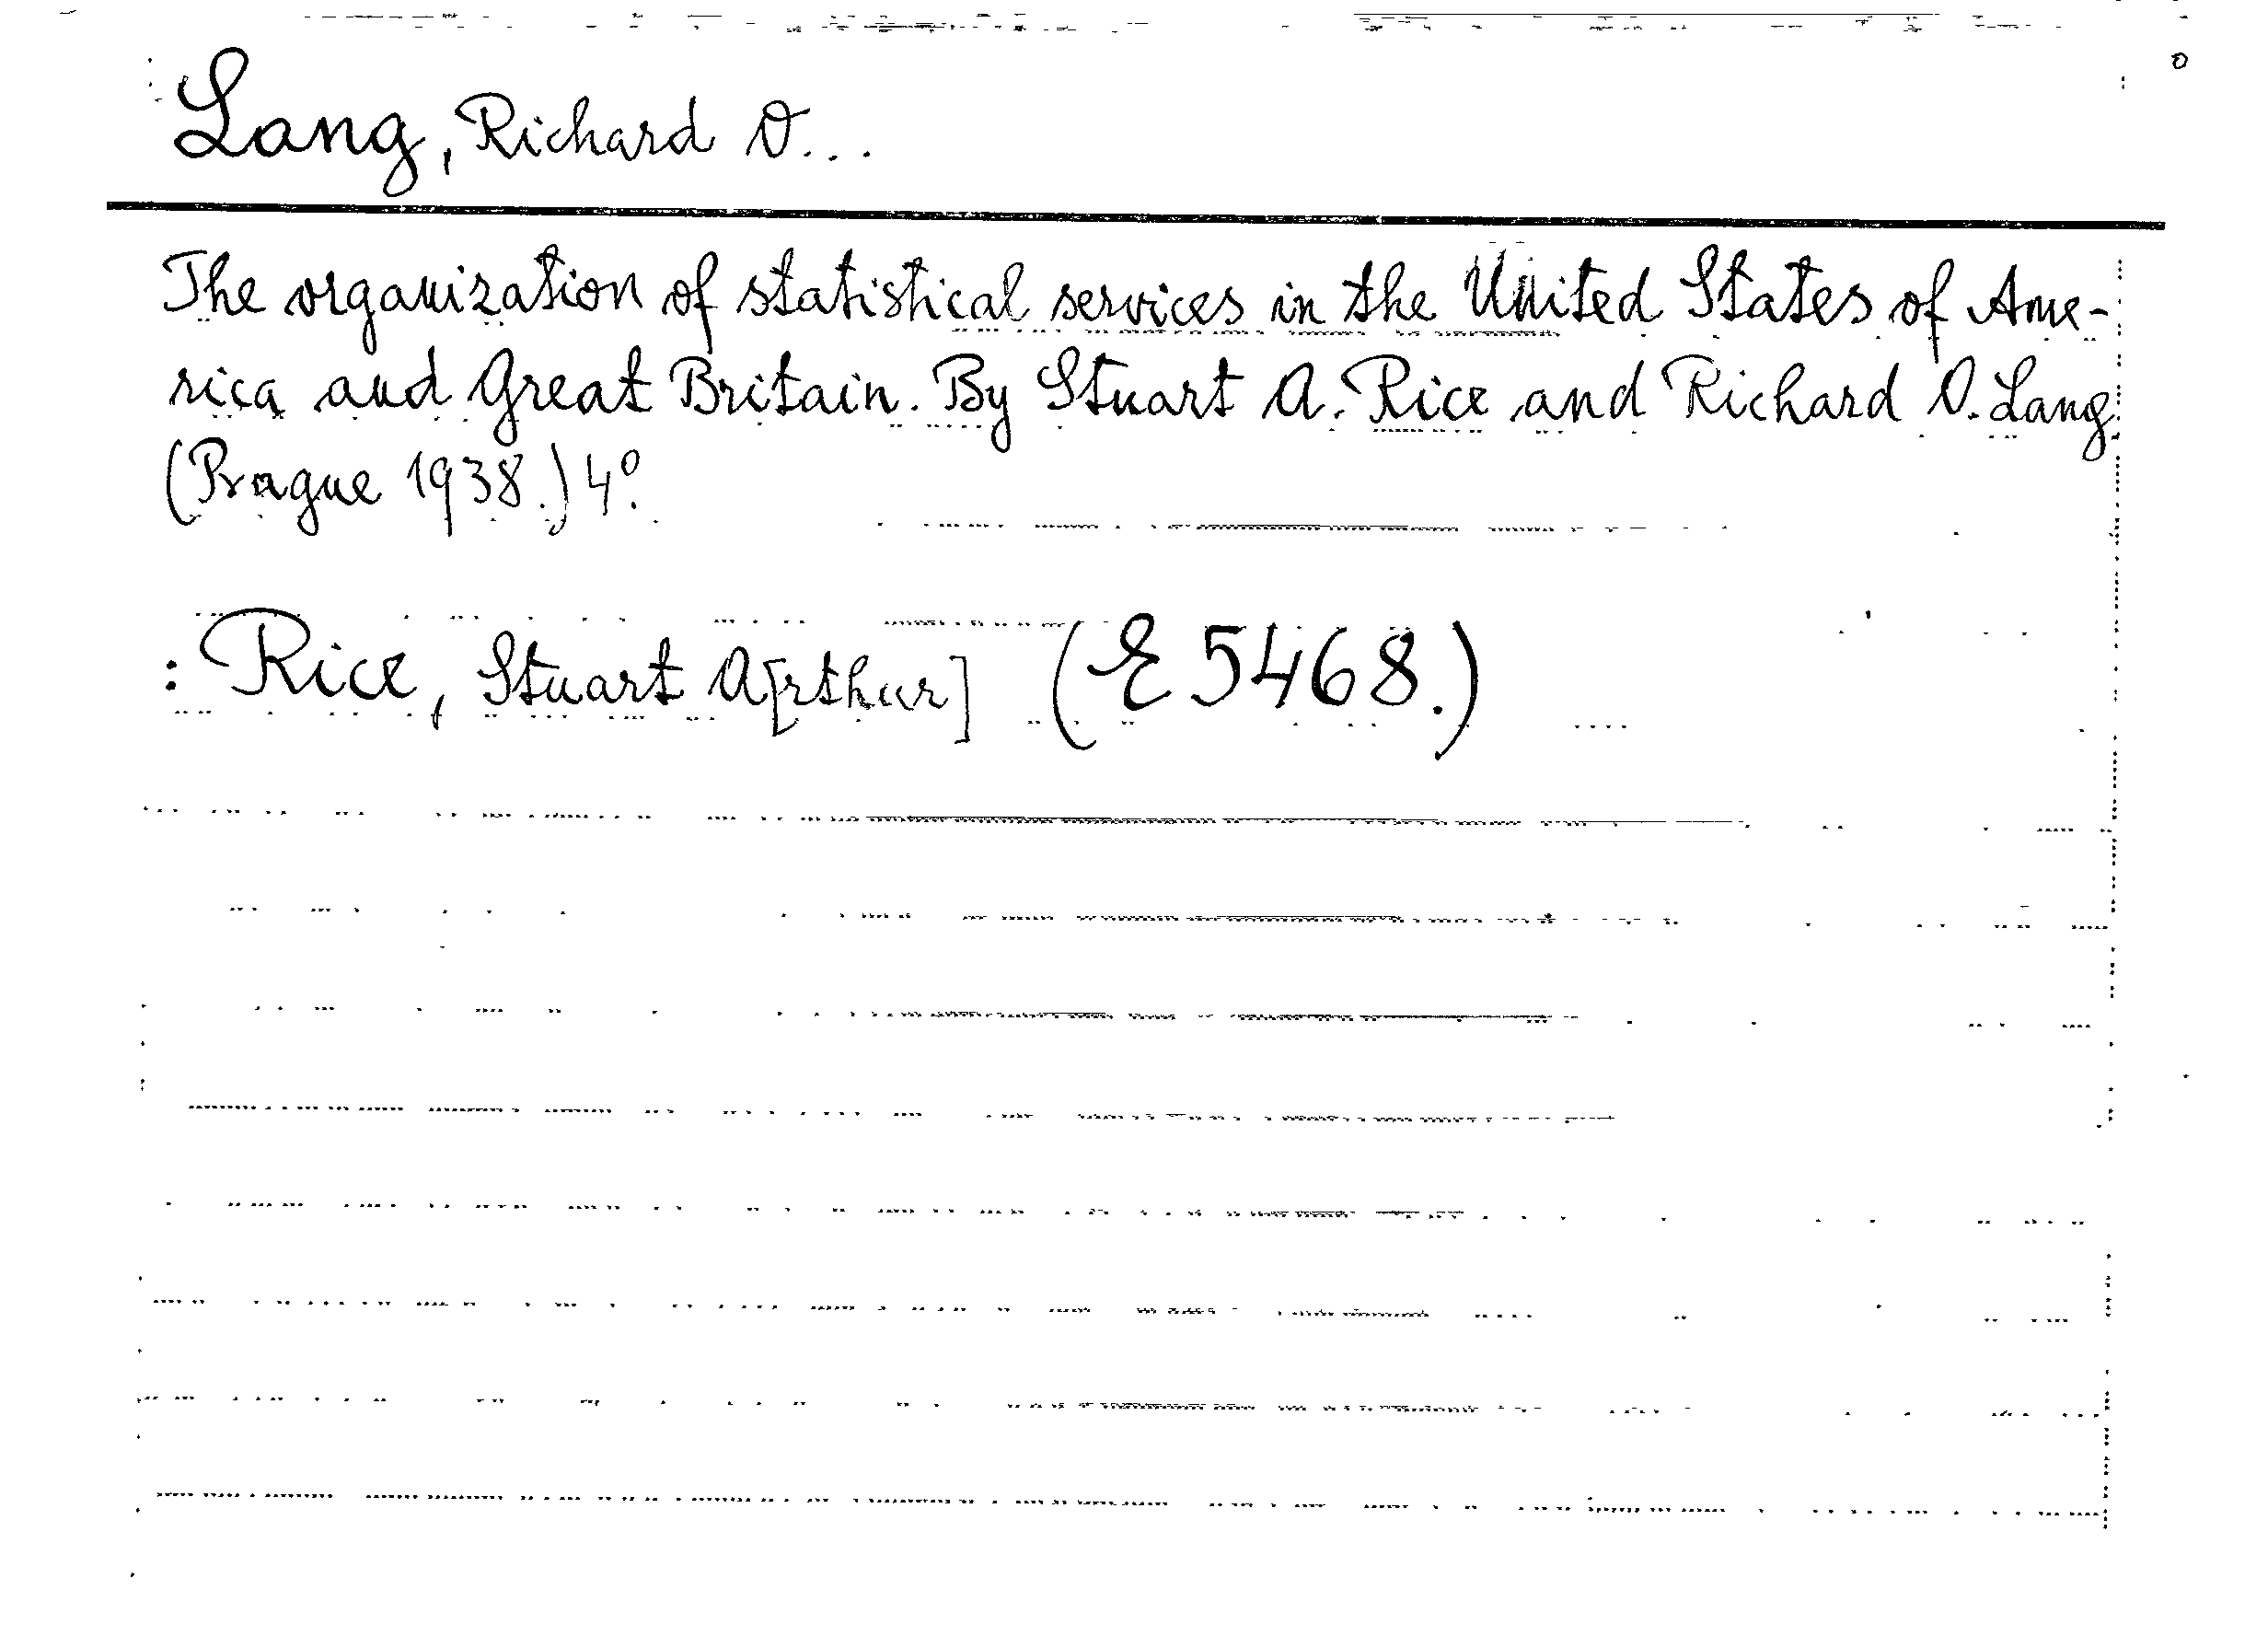 Lang, Richard O...
The organization of statistical services in the United States of Ame-
rica and Great Britain. By Stuart A. Rice and Richard O. Lang.
(Prague 1938.) 4°.
: Rice, Stuart A[rthur] (E 5468.)